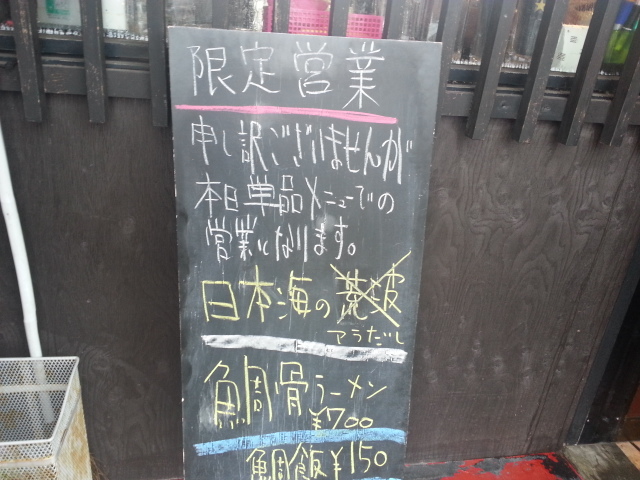 限定営業
申し訳ございませんが
本日単品メニューでの
営業になります。
日本海の荒波
アラだし
鯛骨ラーメン
¥700
鯛飯¥150